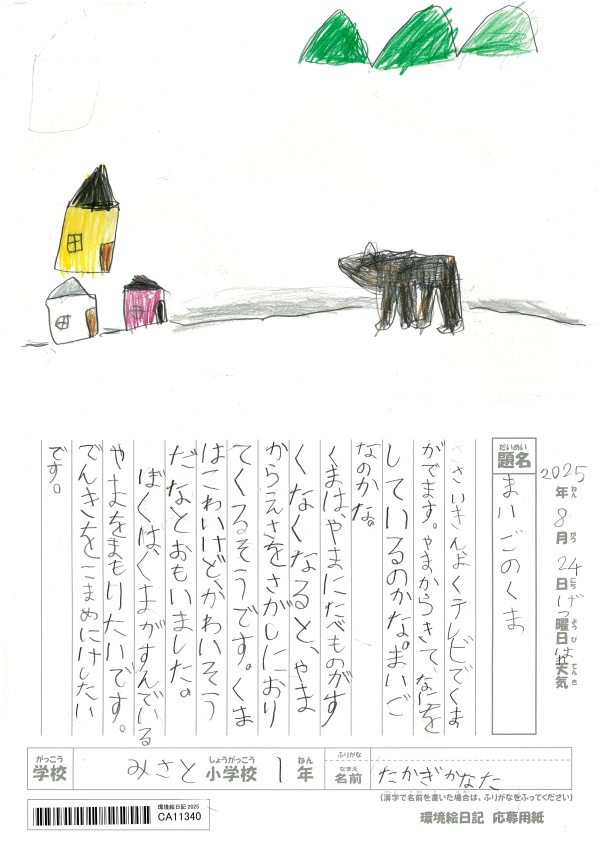 2025年ねん8月がつ24日にちげつ曜日ようびはれ天気てんき
題名だいめい
まいごのくま
さいきんよくテレビでくま
がでます。やまからきて、なにを
しているのかな。まいご
なのかな。
くまは、やまにたべものがす
くなくなると、やま
からえさをさがしにおり
てくるそうです。くま
はこわいけど、かわいそう
だなとおもいました。
ぼくは、くまがすんでいる
やまをまもりたいです。
でんきをこまめにけしたい
です。
学校がっこう みさと小学校しょうがっこう 1年ねん ふりがな 名前なまえ たかぎかなた
(漢字で名前を書いた場合は、ふりがなをふってください)
環境絵日記 応募用紙
環境絵日記 2025
CA11340